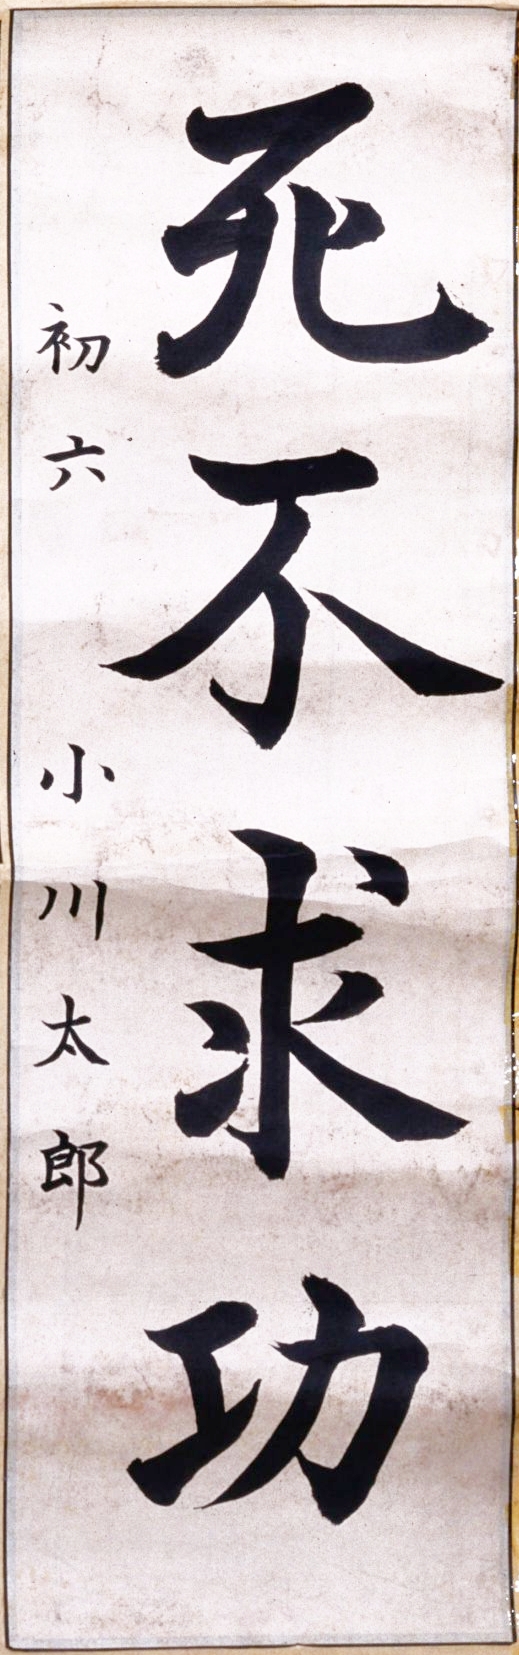 死不求功
初六 小川太郎